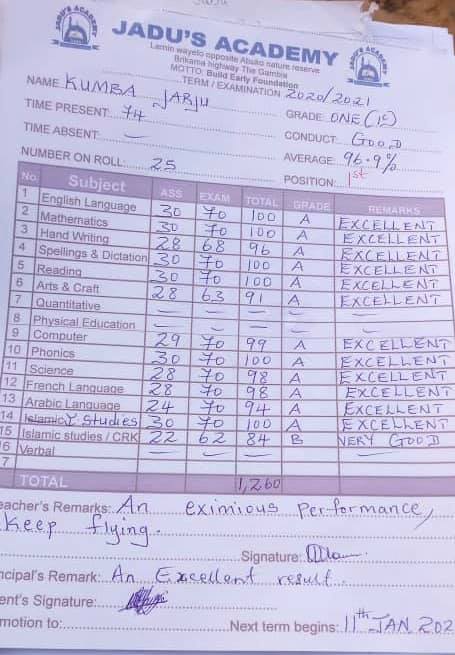 JADU'S ACADEMY
Lamin wayelo opposite Abuko nature reserve
Brikama highway The Gambia
MOTTO: Build Early Foundation
TERM / EXAMINATION 2020/2021
NAME KUMBA JARJU
GRADE: ONE (1c)
TIME PRESENT: 74
CONDUCT: GOOD
TIME ABSENT: —
AVERAGE: 96.9%
NUMBER ON ROLL: 25
POSITION: 1st
No. Subject ASS EXAM TOTAL GRADE REMARKS
1 English Language 30 70 100 A EXCELLENT
2 Mathematics 30 70 100 A EXCELLENT
3 Hand Writing 28 68 96 A EXCELLENT
4 Spellings & Dictation 30 70 100 A EXCELLENT
5 Reading 30 70 100 A EXCELLENT
6 Arts & Craft 28 63 91 A EXCELLENT
7 Quantitative — — — — —
8 Physical Education — — — — —
9 Computer 29 70 99 A EXCELLENT
10 Phonics 30 70 100 A EXCELLENT
11 Science 28 70 98 A EXCELLENT
12 French Language 28 70 98 A EXCELLENT
13 Arabic Language 24 70 94 A EXCELLENT
14 Islamic studies 30 70 100 A EXCELLENT
15 Islamic studies / CRK 22 62 84 B VERY GOOD
6 Verbal — — — — —
7
TOTAL 1,260
eacher's Remarks: An eximious performance,
keep flying.
Signature:
ncipal's Remark: An Excellent result.
ent's Signature:
motion to: Next term begins: 11th JAN. 202